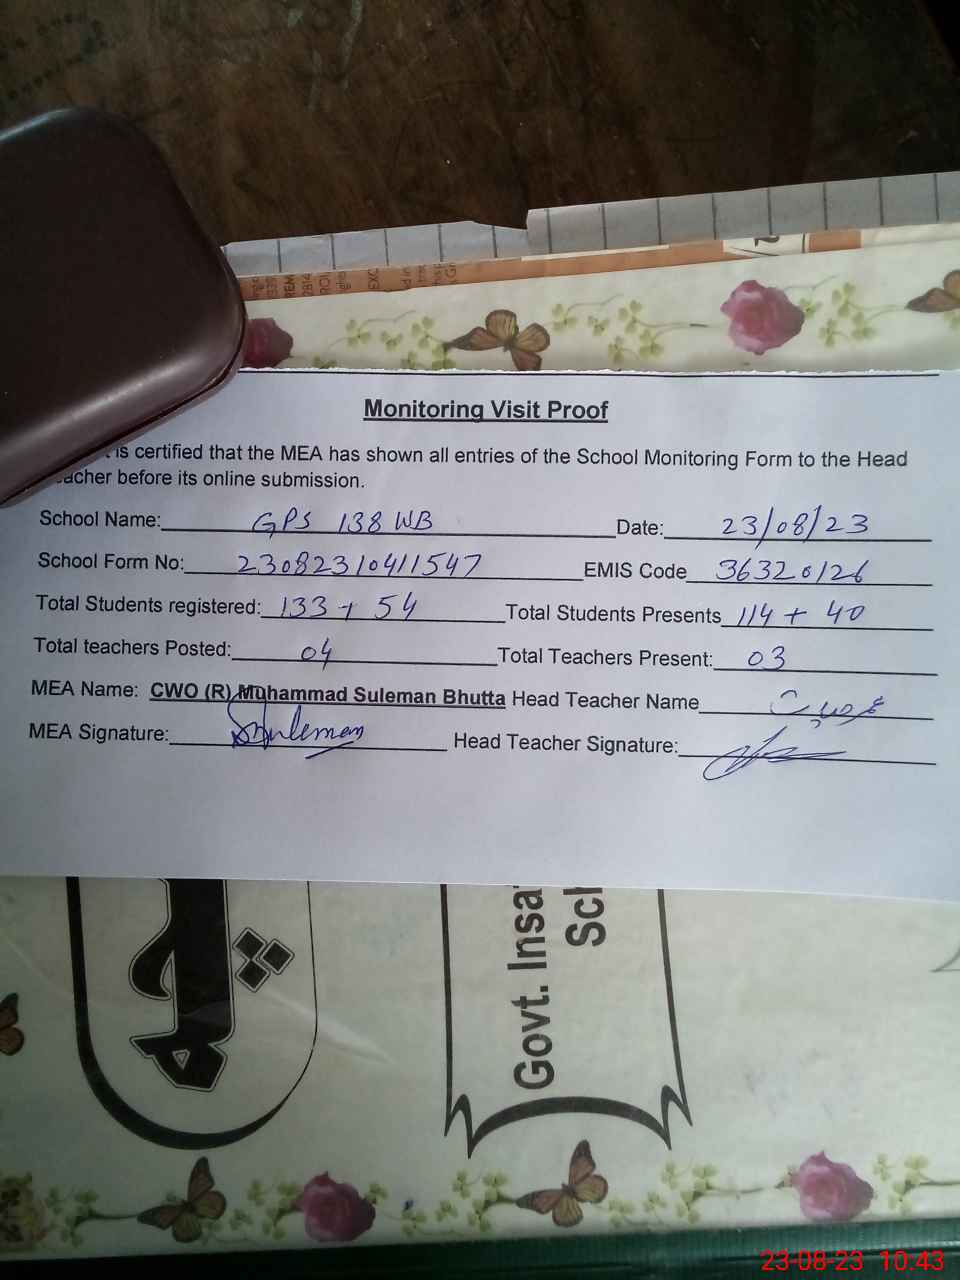 Monitoring Visit Proof
is certified that the MEA has shown all entries of the School Monitoring Form to the Head
acher before its online submission.
School Name: GPS 138 WB Date: 23/08/23
School Form No: 23082310411547 EMIS Code 36320126
Total Students registered: 133 + 54 Total Students Presents 114 + 40
Total teachers Posted: 04 Total Teachers Present: 03
MEA Name: CWO (R) Muhammad Suleman Bhutta Head Teacher Name
MEA Signature: Suleman Head Teacher Signature:
Govt. Insa
Sch
23-08-23 10.43